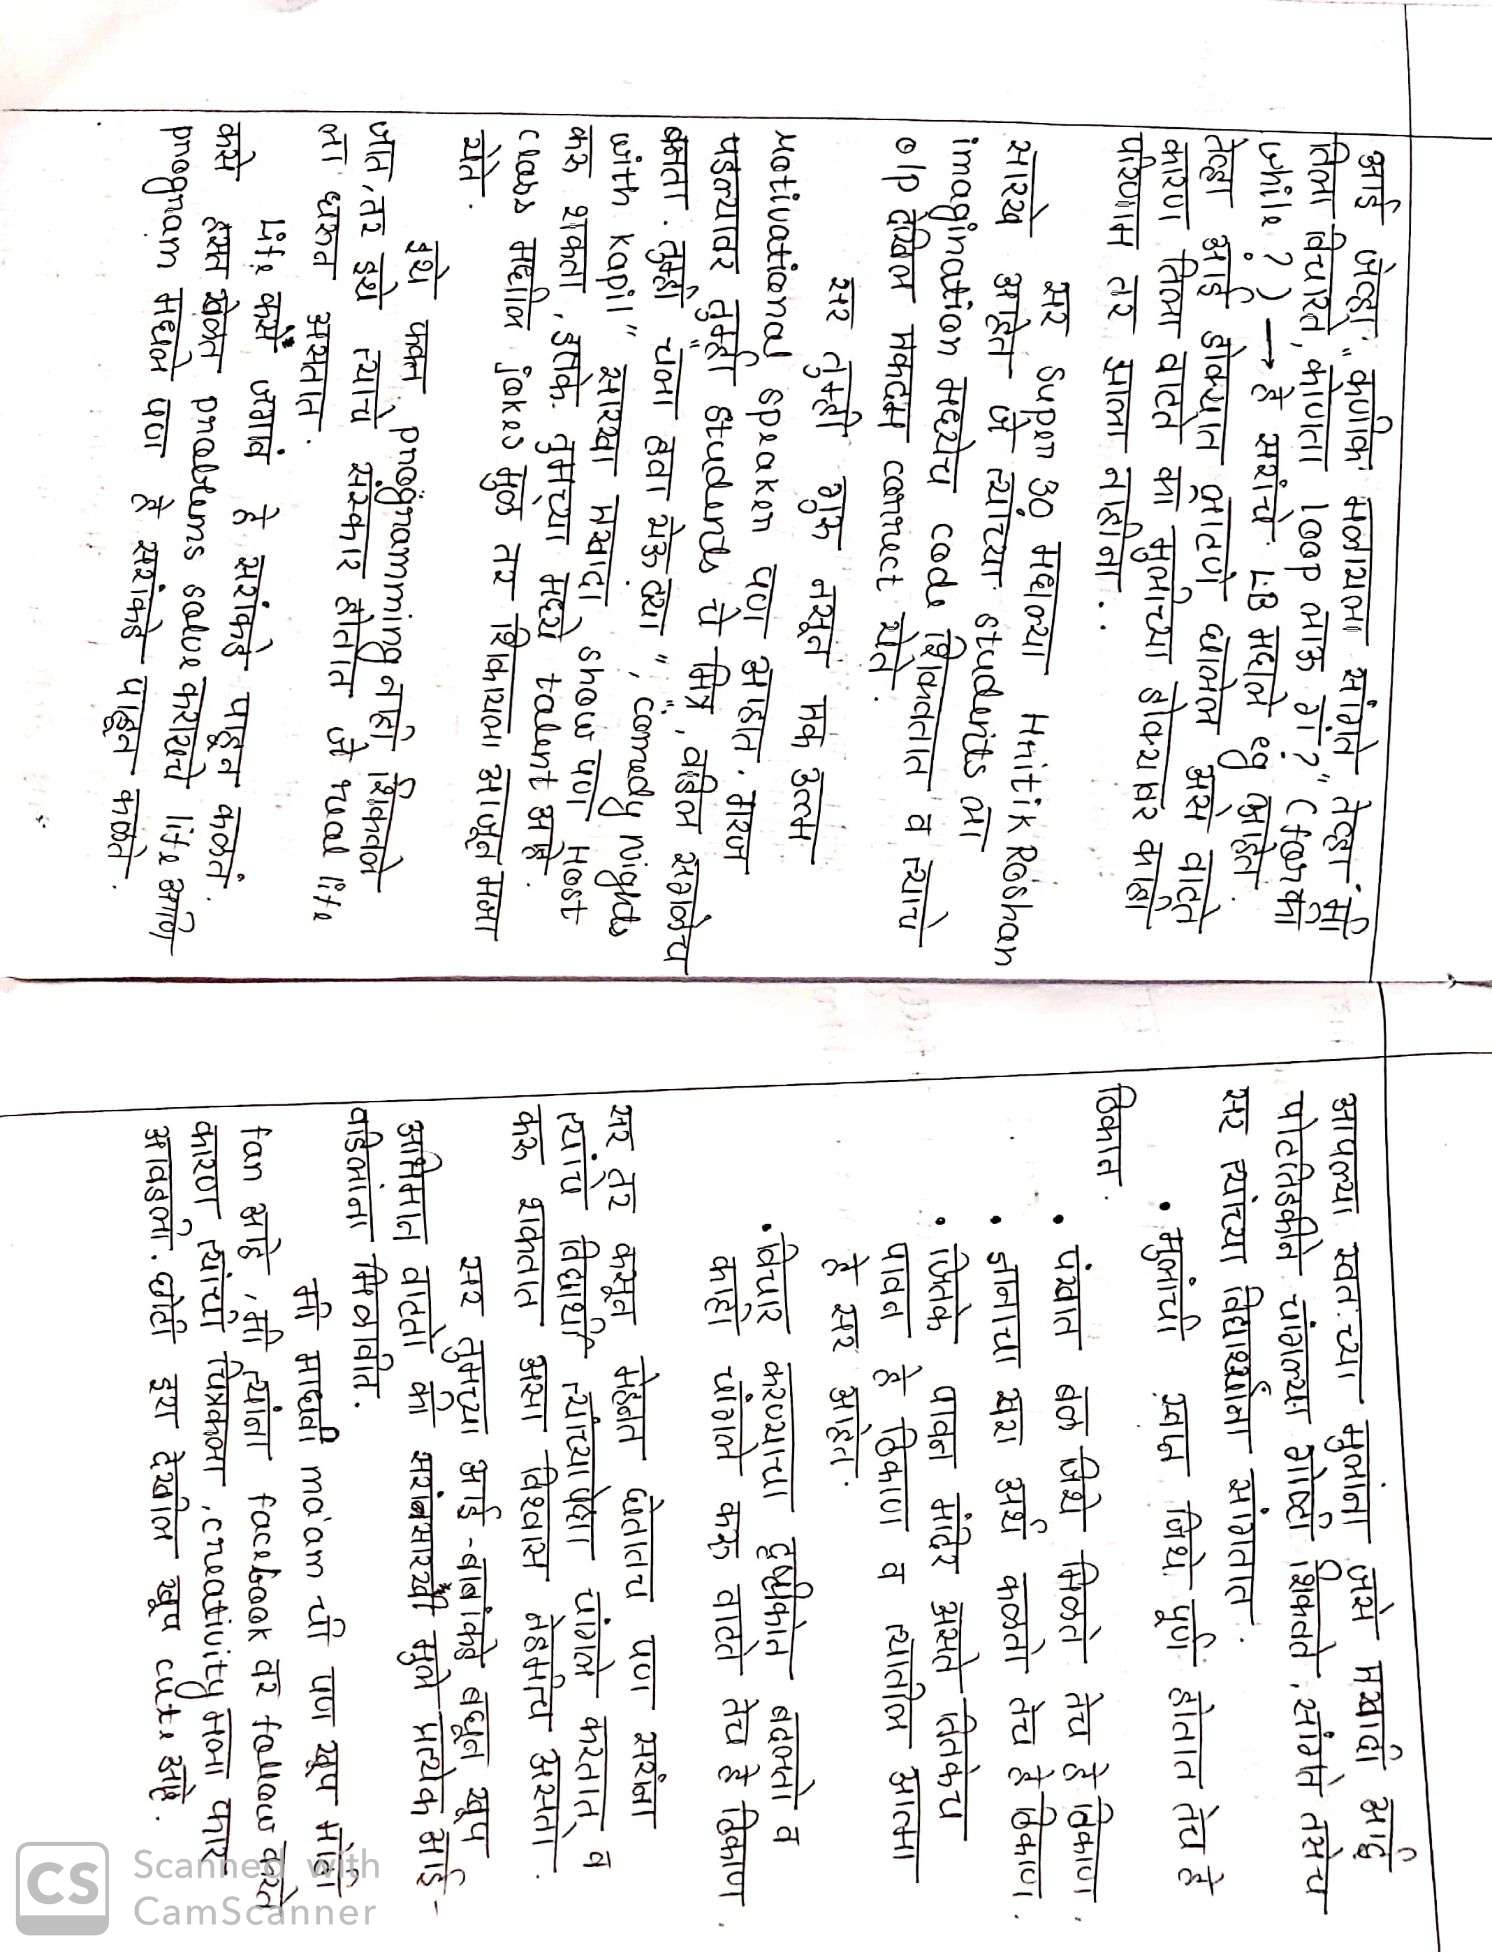 आई जेव्हा "कुणाकि मनायला सांगते तेव्हा मी
तिला विचारते, कोणता loop लाऊ गं?" (for की
while ?) → हे सरांचे LB मधले eg आहेत.
तेव्हा आई डोक्यात लाटणे घालेल असे वाटते
कारण तिला वाटते का मुलीच्या डोक्यावर काही
परिणाम तर झाला नाही ना..
सर Super 30 मधल्या Hritik Roshan
सारखे आहेत जे त्यांच्या students ला
imagination मधेच code शिकवतात व त्याचे
o/p देखिल एकदम correct येते.
सर तुम्ही गुरु नसून एक उत्तम
Motivational speaker पण आहात. गरज
पडल्यावर तुम्ही students चे मित्र, वडिल सगळेच
बनता. तुम्ही "चला हवा येऊ द्या", "Comedy Nights
with Kapil" सारखा एखादा show पण Host
करु शकता, इतके तुमच्या मध्ये talent आहे.
class मधील jokes मुळे तर शिकायला अजून मजा
येते.
इथे फक्त programming नाही शिकवले
जात, तर इथे त्याचे संस्कार होतात जे real life
ला धरून असतात.
Life कसं जगावं हे सरांकडे पाहून कळतं.
कसे हसत खेळत problems solve करायचे life आणि
program मधले पण हे सरांकडे पाहून कळते.
आपल्या स्वतःच्या मुलांना जसे एखादी आई
पोटतिडकीने चांगल्या गोष्टी शिकवते, सांगते तसेच
सर त्यांच्या विद्यार्थ्यांना सांगतात.
• मुलांची स्वप्न जिथे पूर्ण होतात तेच हे
ठिकाण.
• पंखांना बळ जिथे मिळते तेच हे ठिकाण.
• ज्ञानाचा खरा अर्थ कळतो तेच हे ठिकाण.
• जितके पावन मंदिर असते तितकेच
पावन हे ठिकाण व त्यातील आत्मा
हे सर आहेत.
• विचार करण्याचा दृष्टीकोन बदलतो व
काही चांगले करू वाटते तेच हे ठिकाण.
सर तर कसून मेहनत घेतातच पण सरांना
त्यांचे विद्यार्थी त्यांच्यापेक्षा चांगले करतात, व
करु शकतात असा विश्वास नेहमीच असतो.
सर तुमच्या आई-बाबांकडे बघून खूप
अभिमान वाटतो की सरांसारखी मुले प्रत्येक आई-
वडिलांना मिळावीत.
मी माधवी ma'am ची पण खूप मोठी
fan आहे, मी त्यांना facebook वर follow करते
कारण त्यांची चित्रकला, creativity मला फार
आवडली. छोटी इरा देखील खूप cute आहे.
Scanned with
CamScanner
CS